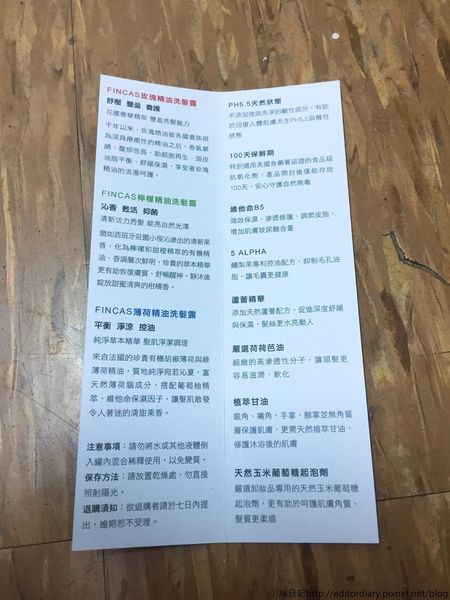 FINCAS玫瑰精油洗髮露
舒壓 豐盈 養護
花樣奢華精萃 豐盈秀髮魅力
千年以來，玫瑰精油被各國貴族視
為深具療癒性的精油之后，香氣縈
繞、馥郁悠長，助細胞再生、頭皮
油脂平衡、舒緩保濕，享受著玫瑰
精油的浪漫呵護。
FINCAS檸檬精油洗髮露
沁香 甦活 抑菌
清新活力秀髮 綻亮自然光澤
猶如西班牙莊園小徑沁滲出的清新果
香，化為檸檬和甜橙精萃的有機精
油，香調層次鮮明，珍貴的草本精華
更有助恢復膚質、舒暢醒神，靜沐後
綻放甜蜜清爽的柑橘香。
FINCAS薄荷精油洗髮露
平衡 淨涼 控油
純淨草本精華 髮肌淨潔調理
來自法國的珍貴有機胡椒薄荷與綠
薄荷精油，質地純淨宛若沁夏，富
天然薄荷腦成分，搭配葡萄柚精
萃、維他命保濕因子，讓髮肌散發
令人著迷的清甜果香。
注意事項：請勿將水或其他液體倒
入罐內混合稀釋使用，以免變質。
保存方法：請放置乾燥處，勿直接
照射陽光。
退購須知：欲退購者請於七日內提
出，逾期恕不受理。
PH5.5天然狀態
不添加強效洗淨的鹼性成分，有助
於回復人體肌膚天生PH5.5弱酸性
狀態
100天保鮮期
特別選用美國食藥署認證的食品級
抗氧化劑，產品開封後僅能存放
100天，安心守護自然無毒
維他命B5
強效保濕、滲透修護、調節皮脂，
增加肌膚玻尿酸含量
5 ALPHA
鱷梨果專利控油配方，抑制毛孔油
脂、讓毛囊更健康
蘆薈精華
添加天然蘆薈配方，促進深度舒緩
與保濕，髮絲更水亮動人
嚴選荷荷芭油
細緻的高滲透性分子，讓頭髮更
容易滋潤、軟化
植萃甘油
眼角、嘴角、手掌、腳掌並無角質
層保護肌膚，更需天然植萃甘油，
修護沐浴後的肌膚
天然玉米葡萄糖起泡劑
嚴選卸妝品專用的天然玉米葡萄糖
起泡劑，更有助於呵護肌膚角質、
髮質更柔順
小編日記http://editordiary.pixnet.net/blog